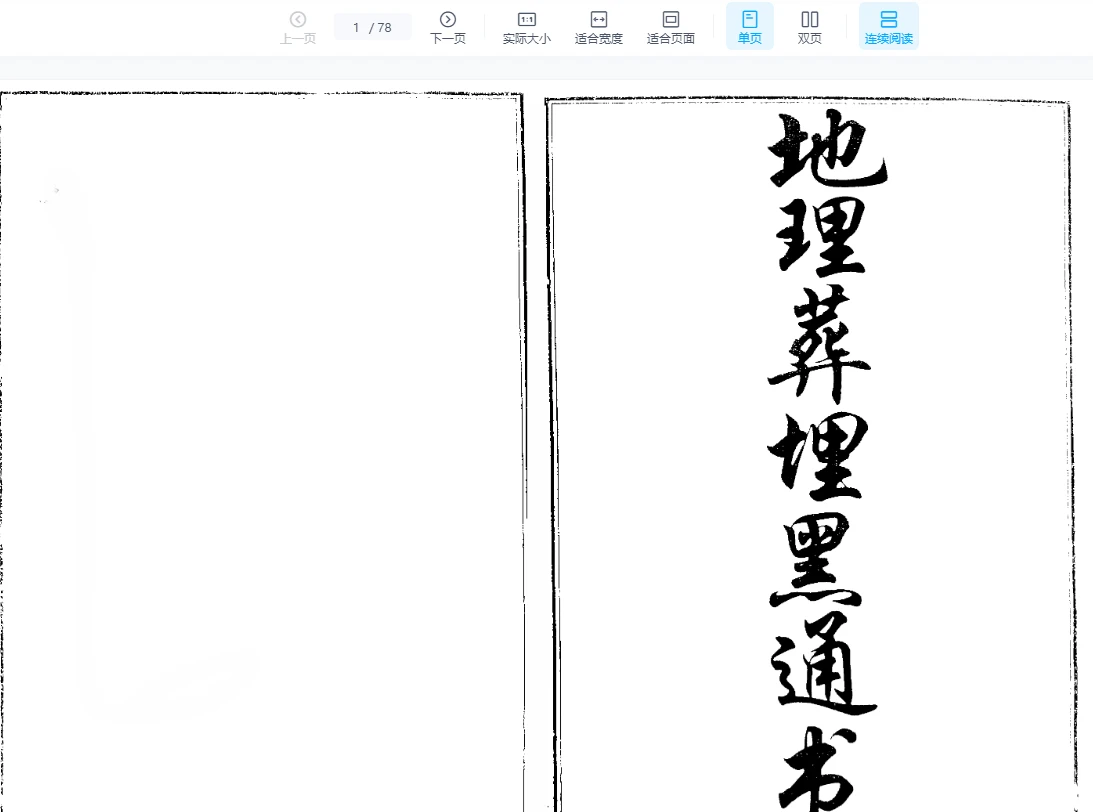 上一页
1 / 78
下一页
1:1
实际大小
适合宽度
适合页面
单页
双页
连续阅读
地理葬埋黑通书